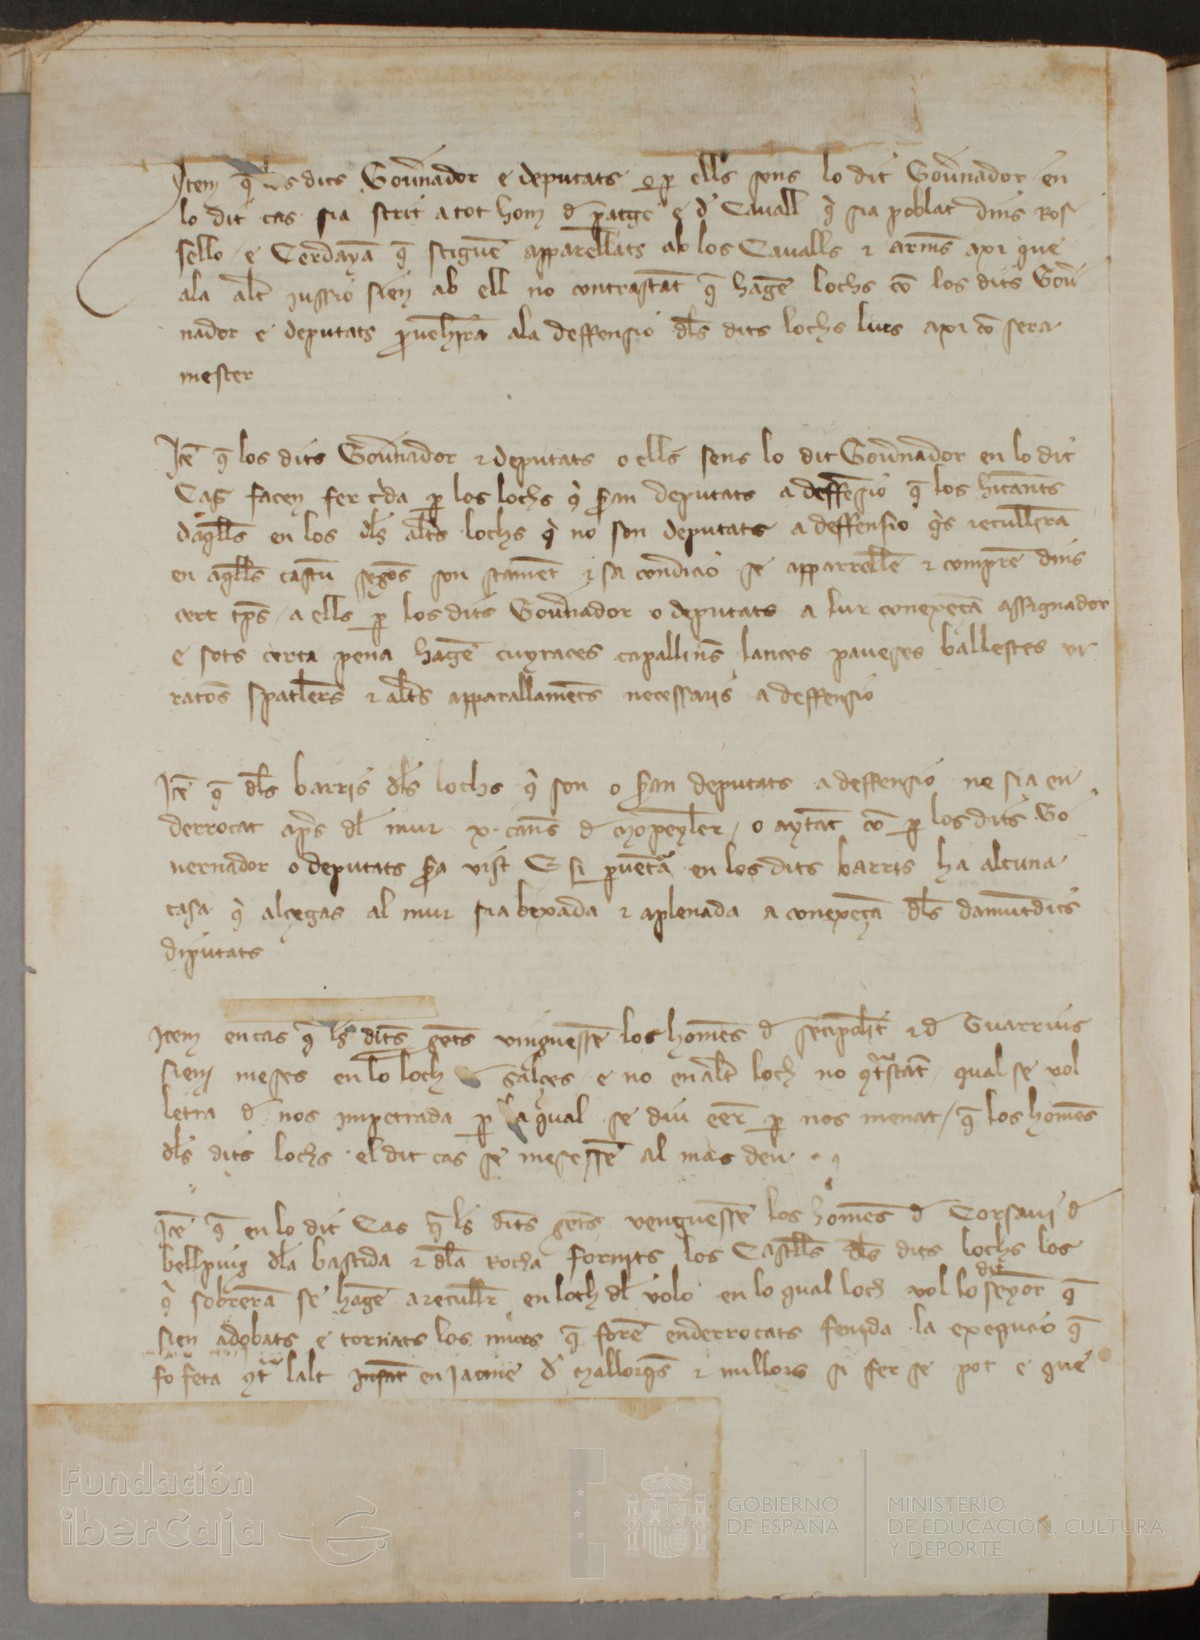 Item q̄ los dits Gou̅nador e deputats o p̱ ells sens lo dit Gou̅nador en
lo dit cas sia scrit a tot hom d p̱atge e d Cauall q̄ sia poblat dins Ros
sello e Cerdayā q̄ stiguē apparellats ab los Caualls ⁊ armˢ axi que
ala alt̄ jussio sien ab ell no contrastāt q̄ hagē lochs cō los dits Gou̅
nador e deputats ꝓuehirā ala deffensio dl̄s dits lochs lurs axi cō sera
mester
Itē q̄ los dits Gou̅nador ⁊ deputats o ells sens lo dit Gou̅nador en lo dit
Cas facen fer c̄da p̱ los lochs q̄ s̄an deputats a deffēsio q̄ los hīcants
daq̄lls en los dl̄s alt̄s lochs q̄ no son deputats a deffensio q̄s recullirā
en aq̄lls cascū segōs son stamēt ⁊ sa condicio se apparrellē ⁊ comprē dins
cert tp̄s a ells p̱ los dits Gou̅nador o deputats a lur conexēca assignador
e sots certa pena hagē cuyraces capallinˢ lances paueses ballestes vi
ratōs spatlerˢ ⁊ alt̄s apparallamētˢ necessaris a deffensio
Itē q̄ dl̄s barris dl̄s lochs q̄ son o s̄an deputats a deffensio ne sia en
derrocat ap̄s dl̄ mur x canˢ d Mōpeyler o aytāt cō p̱ los dits Go
uernador o deputats s̄a vist E si p̱uētā en los dits barris ha alcuna
casa q̄ alcegas al mur sia bexada ⁊ aplenada a conexēça dl̄s damūtdits
diputats
Item en cas q̄ ls̄ ditˢ gētˢ vinguessē los homēs d ⁊ d Guarrius
sien meses en lo loch Salçes e no en alt̄ loch no 9ᵗstāt qual se vol
letra d nos impetrada p̱ la qual se diu eēr p̱ nos menat q̄ los homēs
dl̄s dits lochs el dit cas se mesessē al mas deu
Itē q̄ en lo dit Cas q̄ ls̄ ditˢ gētˢ venguessē los homēs d Corsaui d
bellpuig dl̄a bastida ⁊ dl̄a Rocha fornits los Castl̄ls dl̄s dits lochs los
q̄ sobrerā se hagē a recullir en loch dl̄ volo en lo qual loch vol lo dit seyor q̄
sien adobats e tornats los murs q̄ forē enderrocats fenida la exequcio q̄
fo feta 9ᵗ lalt infāt en Jacme d Mallorq̄s ⁊ millors si fer se pot e que
Fundación
iberCaja
GOBIERNO
DE ESPAÑA
MINISTERIO
DE EDUCACIÓN, CULTURA
Y DEPORTE